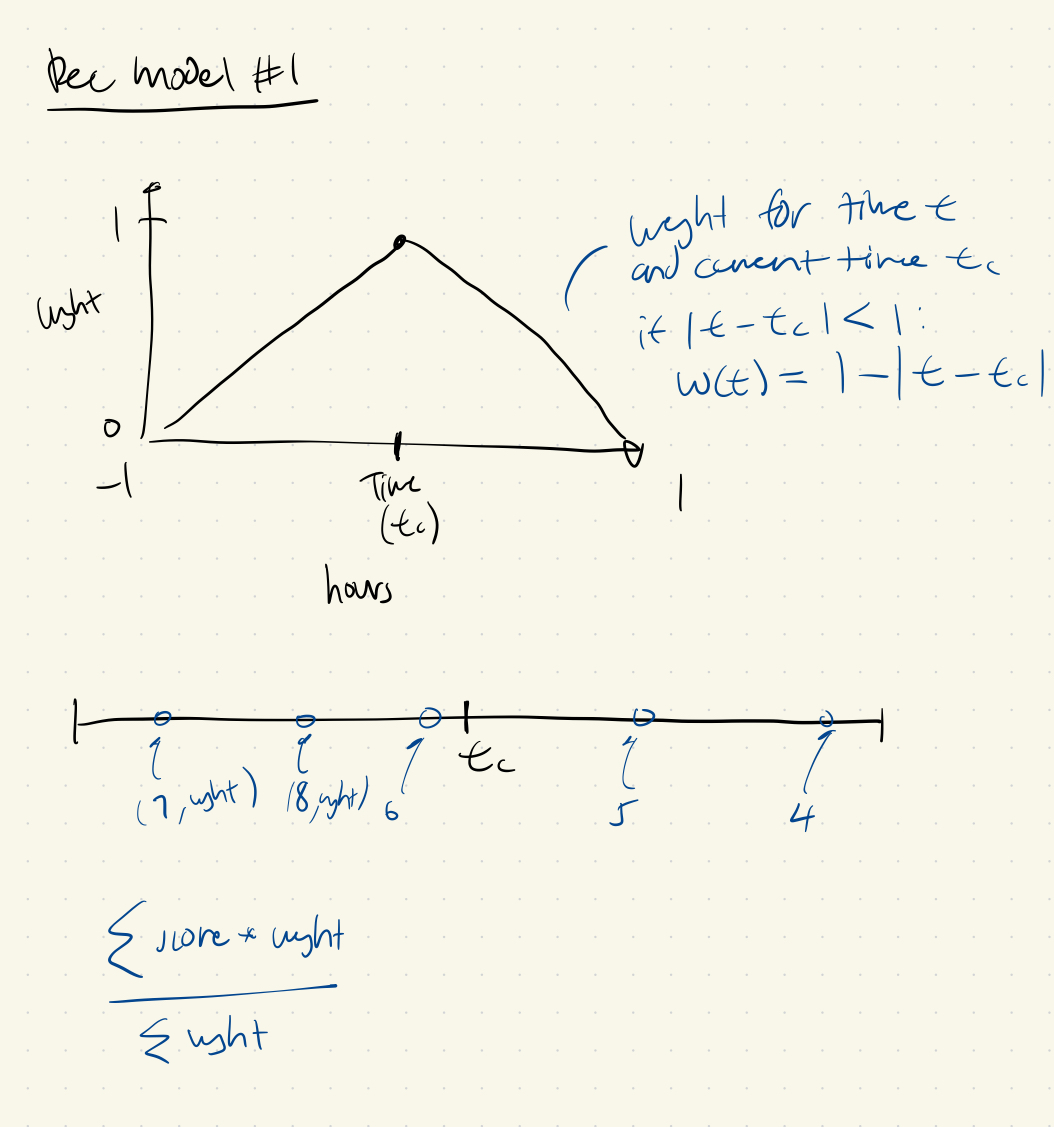 Rec model #1
1
weight
0
-1
Time
(tc)
1
hours
weight for time t
and current time tc
if |t - tc| < 1:
w(t) = 1 - |t - tc|
tc
(7, weight) (8, weight) 6 5 4
Σ score * weight
Σ weight